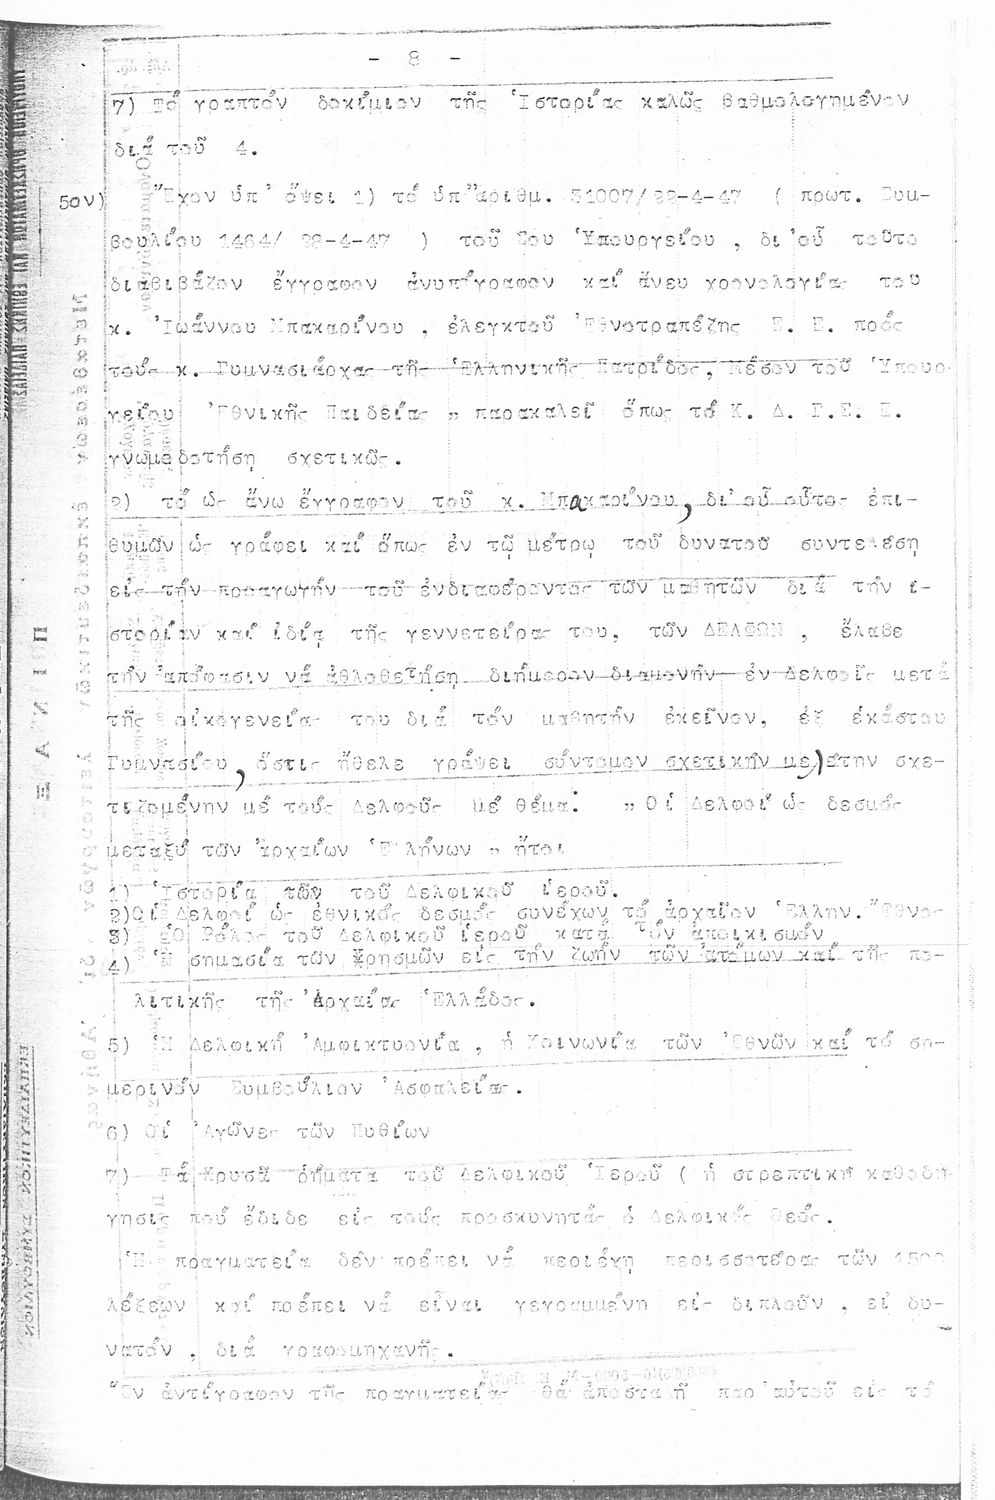 - 8 -
7) Τό γραπτόν δοκίμιον τῆς Ἱστορίας καλῶς βαθμολογημένον
διά τοῦ 4.
5ον) Ἔχον ὑπ' ὄψει 1) τό ὑπ' ἀριθμ. 31007/22-4-47 ( πρωτ. Συμ-
βουλίου 1464/ 28-4-47 ) τοῦ Σου Ὑπουργείου , δι'οὗ τοῦτο
διαβιβάζον ἔγγραφον ἀνυπόγραφον καί ἄνευ χρονολογίας του
κ. Ἰωάννου Μπακαρίνου , ἐλεγκτοῦ Ἐθνοτραπέζης Ε. Ε. πρός
τούς κ. Γυμνασιάρχας τῆς Ἑλληνικῆς Πατρίδος, Μέσον τοῦ Ὑπουρ-
γείου Ἐθνικῆς Παιδείας „ παρακαλεῖ ὅπως τό Κ. Δ. Γ.Σ. Ε.
γνωμοδοτήση σχετικῶς.
2) τό ὡς ἄνω ἔγγραφον τοῦ κ. Μπακαρίνου, δι'οὗ οὗτος ἐπι-
θυμῶν ὡς γράφει καί ὅπως ἐν τῷ μέτρῳ τοῦ δυνατοῦ συντελέση
εἰς τήν προαγωγήν τοῦ ἐνδιαφέροντος τῶν μαθητῶν διά τήν ἱ-
στορίαν καί ἰδίᾳ τῆς γεννετείρας του, τῶν ΔΕΛΦΩΝ , ἔλαβε
τήν ἀπόφασιν νά ἀθλοθετήση διήμερον διαμονήν ἐν Δελφοῖς μετά
τῆς οἰκογενείας του διά τόν μαθητήν ἐκεῖνον, ἐξ ἑκάστου
Γυμνασίου, ὅστις ἤθελε γράψει σύντομον σχετικήν μελέτην σχε-
τιζομένην μέ τούς Δελφούς μέ θέμα: „ Οἱ Δελφοί ὡς δεσμός
μεταξύ τῶν ἀρχαίων Ἑλλήνων „ ἤτοι
1) Ἱστορία τῶν τοῦ Δελφικοῦ ἱεροῦ.
2)Οἱ Δελφοί ὡς ἐθνικός δεσμός συνέχων τό ἀρχαῖον Ἑλλην. Ἔθνος
3) Ὁ Ρόλος τοῦ Δελφικοῦ ἱεροῦ κατά τόν ἀποικισμόν
4) Ἡ σημασία τῶν Χρησμῶν εἰς τήν ζωήν τῶν ἀτόμων καί τῆς πο-
λιτικῆς τῆς Ἀρχαίας Ἑλλάδος.
5) Ἡ Δελφική Ἀμφικτυονία , ἡ Κοινωνία τῶν Ἐθνῶν καί τό ση-
μερινόν Συμβούλιον Ἀσφαλείας.
6) Οἱ Ἀγῶνες τῶν Πυθίων
7) Τά Χρυσᾶ ρήματα τοῦ Δελφικοῦ Ἱεροῦ ( ἡ στρεπτική καθοδή-
γησις πού ἔδιδε εἰς τούς προσκυνητάς ὁ Δελφικός Θεός.
Ἡ πραγματεία δέν πρέπει νά περιέχη περισσοτέρας τῶν 1500
λέξεων καί πρέπει νά εἶναι γεγραμμένη εἰς διπλοῦν , εἰ δυ-
νατόν , διά γραφομηχανῆς.
Ἕν ἀντίγραφον τῆς πραγματείας θά ἀποσταλῆ παρ'αὐτοῦ εἰς τό